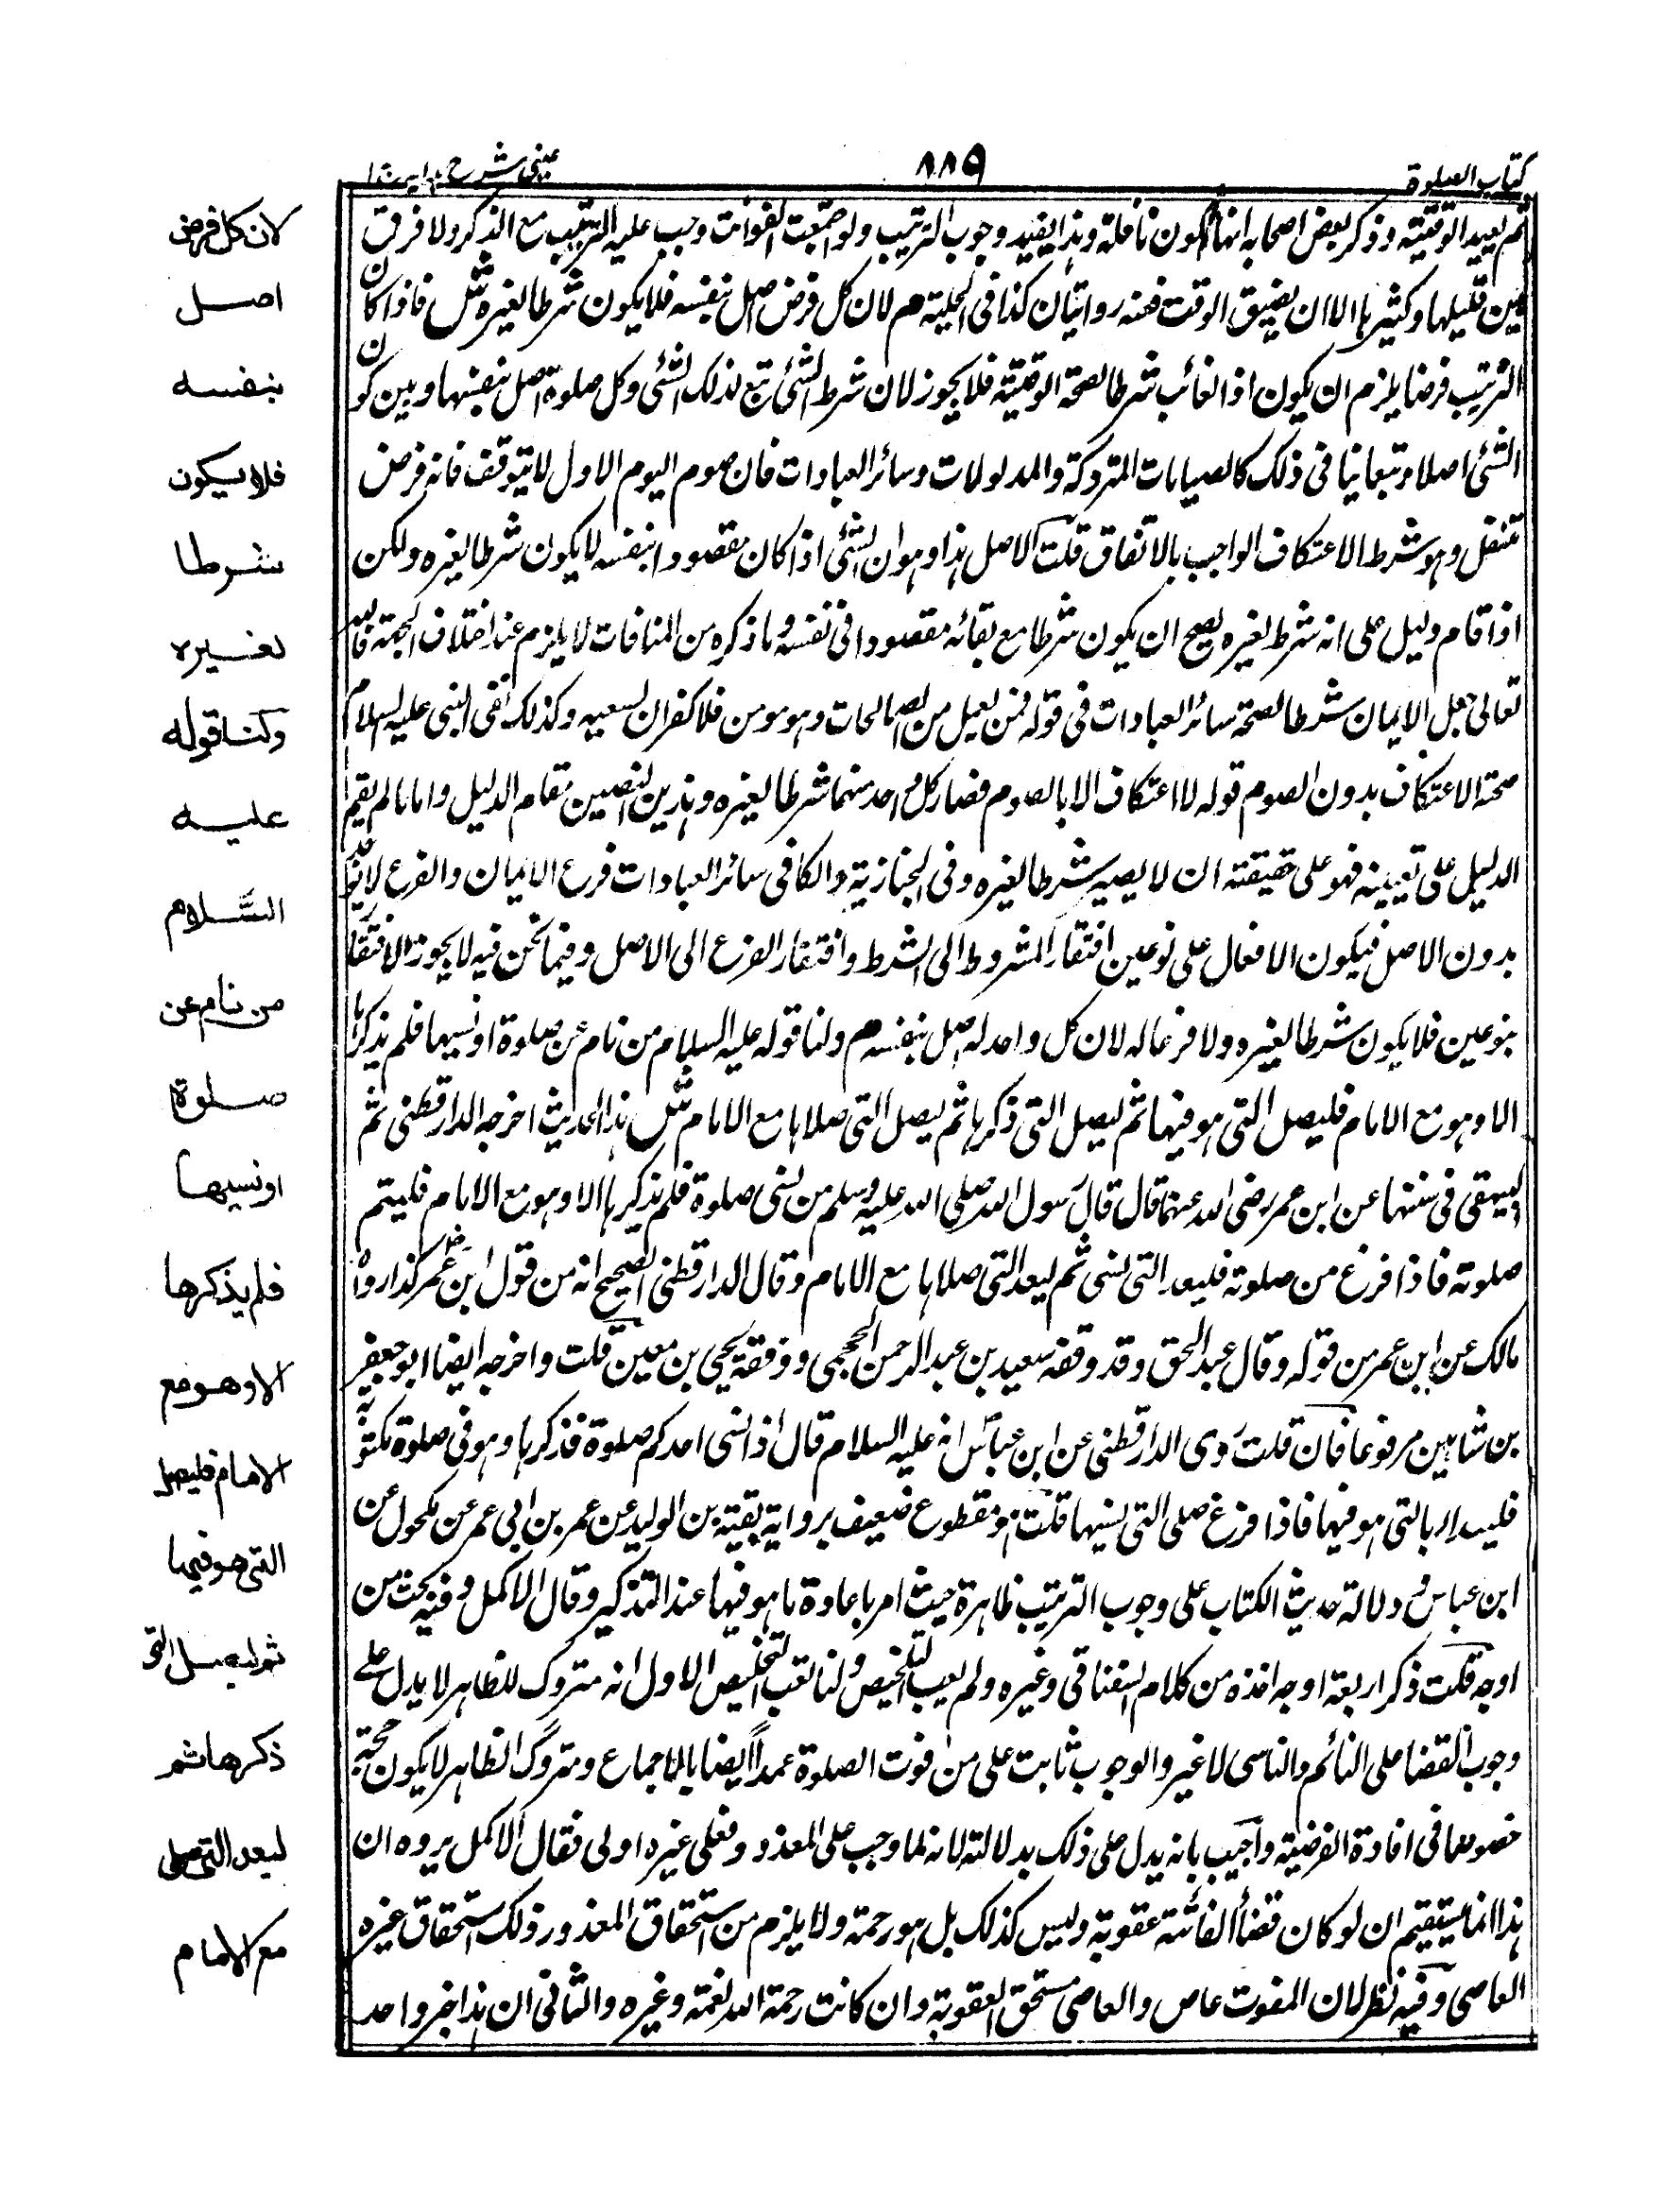 كتاب الصلوة
٨٨٩
عینی شرح ہدایہ ج ١
ثم يعيد الوقتية وذكر بعض اصحابه انها تكون نافلة وهذا يفيد وجوب الترتيب ولو اجتمعت الفوائت وجب عليه الترتيب مع الذكر ولا فرق
بين قليلها وكثيرها الا ان يضيق الوقت فعنه روايتان كذا فى الحلية م لان كل فرض اصل بنفسه فلا يكون شرطا لغيره ش فاذا كان
الترتيب فرضا يلزم ان يكون اذ الفائت شرطا لصحة الوقتية فلا يجوز لان شرط الشئ تبع لذلك الشئ وكل صلوة اصل بنفسها وبين كون
الشئ اصلا وتبعا تنا فى ذلك كالصيامات المتروكة والمدلولات وسائر العبادات فان صوم اليوم الاول لا يتوقف فانه فرض
تنفل وهو شرط الاعتكاف الواجب بالاتفاق قلت الاصل هذا وهو ان الشئ اذا كان مقصودا بنفسه لا يكون شرطا لغيره ولكن
اذا قام دليل على انه شرط لغيره يصح ان يكون شرطا مع بقائه مقصودا فى نفسه وما ذكره من المنافات لا يلزم عند اختلاف الجهة فالله
تعالى جعل الايمان شرطا لصحة سائر العبادات فى قوله فمن يعمل من الصالحات وهو مومن فلا كفران لسعيه وكذلك نفى النبى عليه السلام
صحة الاعتكاف بدون الصوم قوله لا اعتكاف الا بالصوم فصار كل واحد منهما شرطا لغيره وهذين النصين مقام الدليل واما ما لم يقم
الدليل على تعيينه فهو على حقيقته ان لا يصير شرطا لغيره وفى الجنازية والكافى سائر العبادات فرع الايمان والفرع لا يوجد
بدون الاصل فيكون الافعال على نوعين افتقار المشروط الى الشرط وافتقار الفرع الى الاصل وفيما نحن فيه لا يجوز الافتقار
بنوعين فلا يكون شرطا لغيره ولا فرعا له لان كل واحد له اصل بنفسه م ولنا قوله عليه السلام من نام عن صلوة او نسيها فلم يذكرها
الا وهو مع الامام فليصل التى هو فيها ثم ليصل التى ذكرها ثم ليصل التى صلاها مع الامام ش هذا الحديث اخرجه الدارقطنى ثم
البيهقى فى سننهما عن ابن عمر رضى الله عنهما قال قال رسول الله صلى الله عليه وسلم من نسى صلوة فلم يذكرها الا وهو مع الامام فليتم
صلوته فاذا فرغ من صلوته فليعد التى نسى ثم ليعد التى صلاها مع الامام وقال الدارقطنى الصحيح انه من قول ابن عمر كذا رواه
مالك عن ابن عمر من قوله وقال عبد الحق وقد وقفه سعيد بن عبد الرحمن الجمحى ووثقه يحيى بن معين قلت واخرجه ايضا ابو حفص
بن شاهين مرفوعا فان قلت روى الدارقطنى عن ابن عباس انه عليه السلام قال اذا نسى احدكم صلوة فذكرها وهو فى صلوة مكتوبة
فليبدا بالتى هو فيها فاذا فرغ صلى التى نسيها قلت هو مقطوع ضعيف برواية بقية بن الوليد عن عمر بن ابى عمر عن مكحول عن
ابن عباس ودلالة حديث الكتاب على وجوب الترتيب ظاهرة حيث امر باعادة ما هو فيها عند التذكير وقال الاكمل وفيه بحث من
اوجه قلت ذكر اربعة اوجه اخذه من كلام السغناقى وغيره ولم يعب التلخيص ولنا تعقب التخليص الاول انه متروك للظاهر لا يدل على
وجوب القضا على النائم والناسى لا غير والوجوب ثابت على من فوت الصلوة عمداً ايضا بالاجماع ومتروك الظاهر لا يكون حجة
خصوصا فى افادة الفرضية واجيب بانه يدل على ذلك بدلالته لانه لما وجب على المعذور فعلى غيره اولى فقال الاكمل يروه ان
هذا انما يستقيم ان لو كان قضاء الفائتة عقوبة وليس كذلك بل هو رحمة ولا يلزم من استحقاق المعذور ذلك استحقاق غيره
العاصى وفيه نظر لان المفوت عاص والعاصى مستحق العقوبة وان كانت رحمة الله نعمة وغيره والثانى ان هذا خبر واحد
لان كل فرض
اصل
بنفسه
فلا يكون
شرطا
لغيره
ولنا قوله
عليه
السلام
من نام عن
صلوة
او نسيها
فلم يذكرها
الا وهو مع
الامام فليصل
التى هو فيها
ثم ليصل التى
ذكرها ثم
ليعد التى صلى
مع الامام